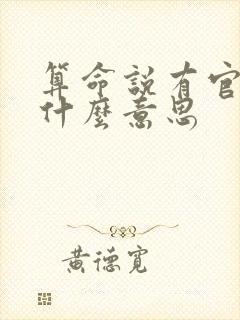 算命說有官
什麼意思
黃德寬